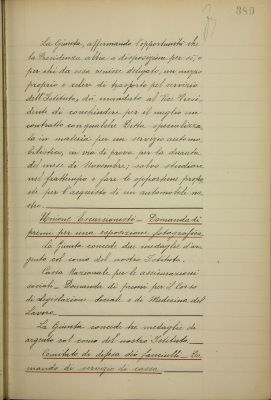 380
La Giunta, affermando l'opportunità che
la Presidenza abbia a disposizione per sè, o
per chi da essa venisse delegato, un mezzo
proprio e sicuro di trasporto pel servizio
dell'Istituto, dà mandato al Vice Presi-
dente di conchiudere per il meglio un
contratto con qualche Ditta specializza-
ta in materia per un servizio automo-
bilistico, in via di prova per la durata
del mese di Novembre, salvo studiare
nel frattempo e fare le opportune propo-
ste per l'acquisto di un automobile no-
stro.
Unione Escursionisti - Domanda di
premi per una esposizione fotografica.
La Giunta concede due medaglie d'ar-
gento col conio del nostro Istituto.
Cassa Nazionale per le assicurazioni
sociali - Domanda di premi per il Corso
di Legislazione sociale e di Medicina del
Lavoro.
La Giunta concede tre medaglie di
argento col conio del nostro Istituto.
Comitato di difesa dei fanciulli - Do-
manda di servizio di cassa.